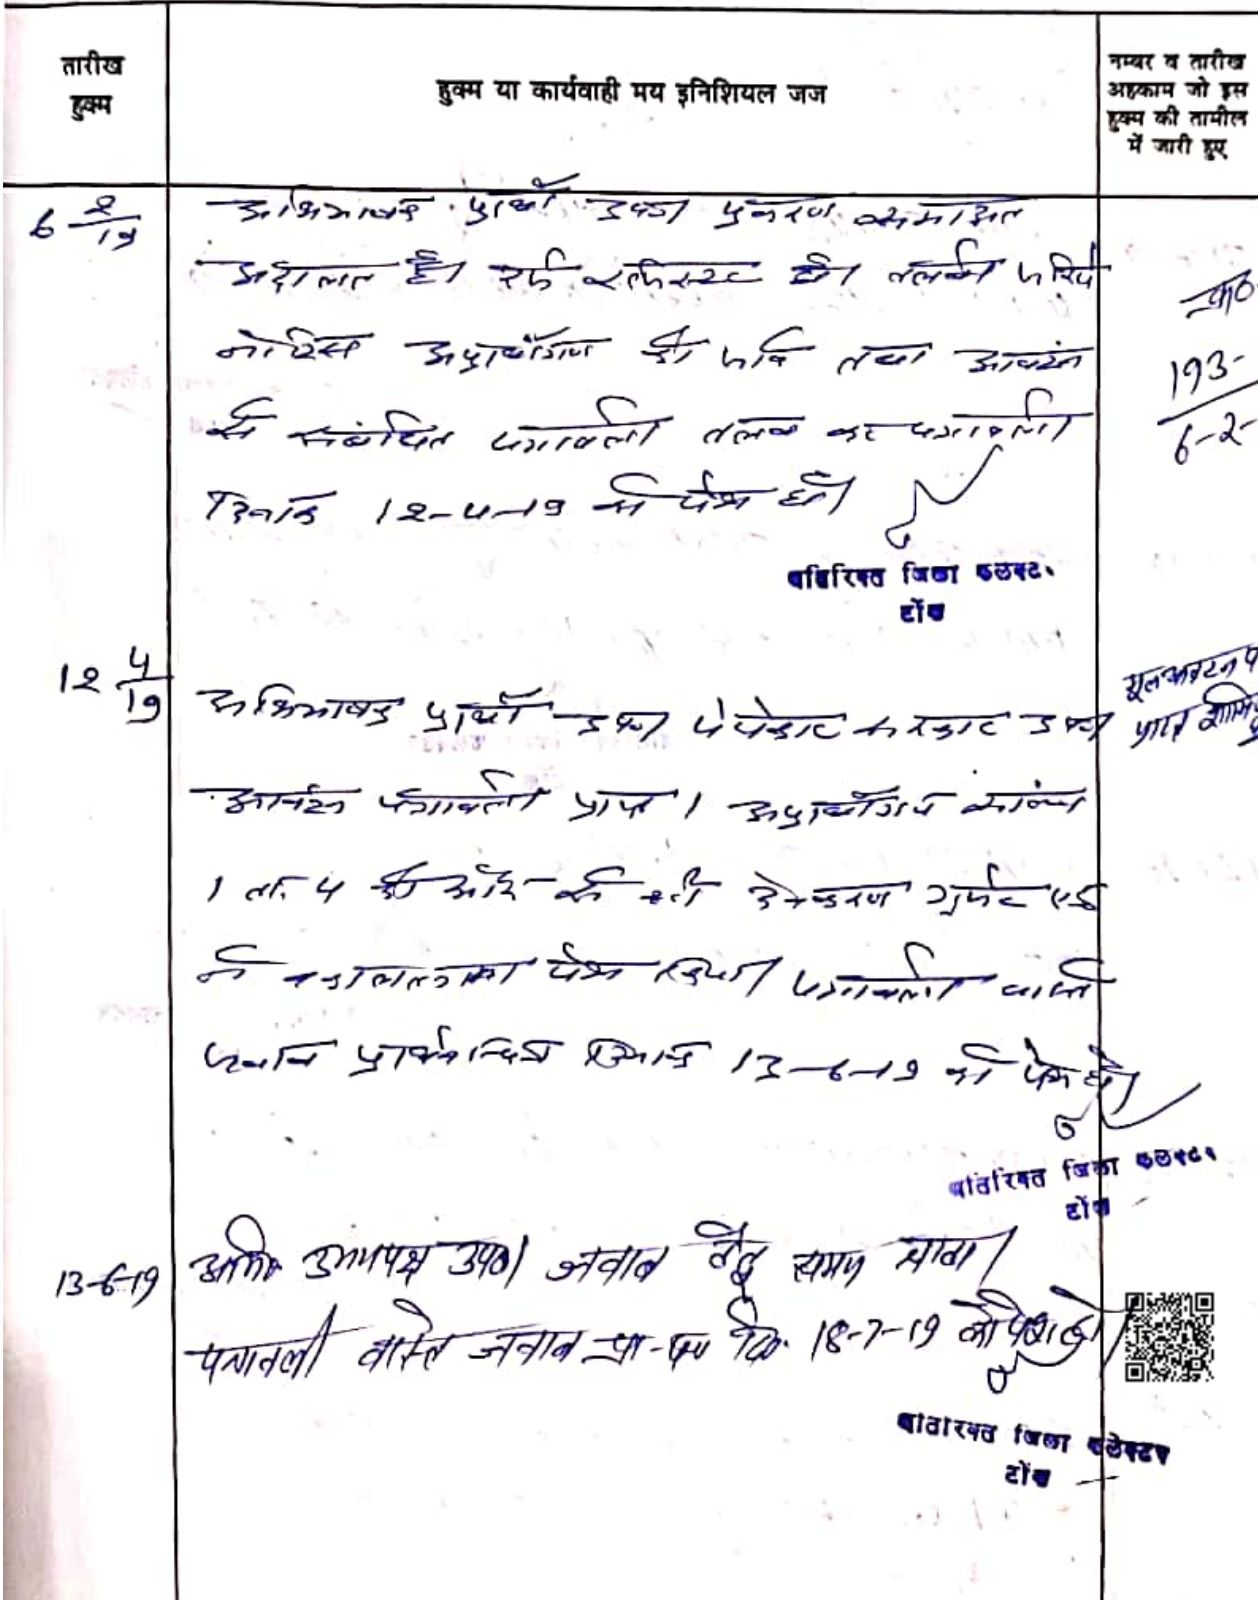 तारीख
हुक्म
हुक्म या कार्यवाही मय इनिशियल जज
नम्बर व तारीख
अहकाम जो इस
हुक्म की तामील
में जारी हुए
6 2/19
अभिभाषक प्रार्थी उप0। प्रकरण समाअत
अदालत है। दर्ज रजिस्टर हो। तलबी जरिये
नोटिस अप्रार्थीगण की जावे तथा आवंटन
से संबंधित पत्रावली तलब कर पत्रावली
दिनांक 12-4-19 को पेश हो।
193-
6-2-
अतिरिक्त जिला कलक्टर
टोंक
12 4/19
अभिभाषक प्रार्थी उप0। पेरोकार सरकार उप0।
आवंटन पत्रावली प्राप्त। अप्रार्थीगण संख्या
1 ता. 4 की ओर से श्री देवकरण गुर्जर एड
ने वकालतनामा पेश किया। पत्रावली वास्ते
जवाब प्रार्थना दिनांक 13-6-19 को पेश हो।
मूल आवंटन
अतिरिक्त जिला कलक्टर
टोंक
13-6-19
अभि0 उभयपक्ष उप0। जवाब हेतु समय चाहा।
पत्रावली वास्ते जवाब प्रा-पत्र दि. 18-7-19 को पेश हो।
अतिरिक्त जिला कलेक्टर
टोंक